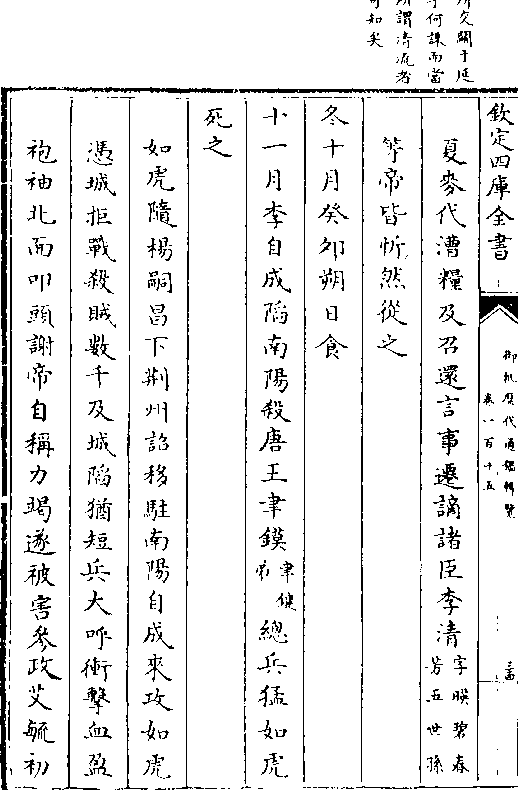 所交關于廷
何謀而當
所謂清流者
可知矣
欽定四庫全書
御批歷代通鑑輯覽
卷一百十五
夏麥代漕糧及召還言事遷謫諸臣李清字映碧春芳五世孫
等帝皆忻然從之
冬十月癸卯朔日食
十一月李自成陷南陽殺唐王聿鏌聿鍵弟總兵猛如虎
死之
如虎隨楊嗣昌下荆州詔移駐南陽自成來攻如虎
憑城拒戰殺賊數千及城陷猶短兵大呼衝擊血盈
袍袖北面叩頭謝帝自稱力竭遂被害參政艾毓初